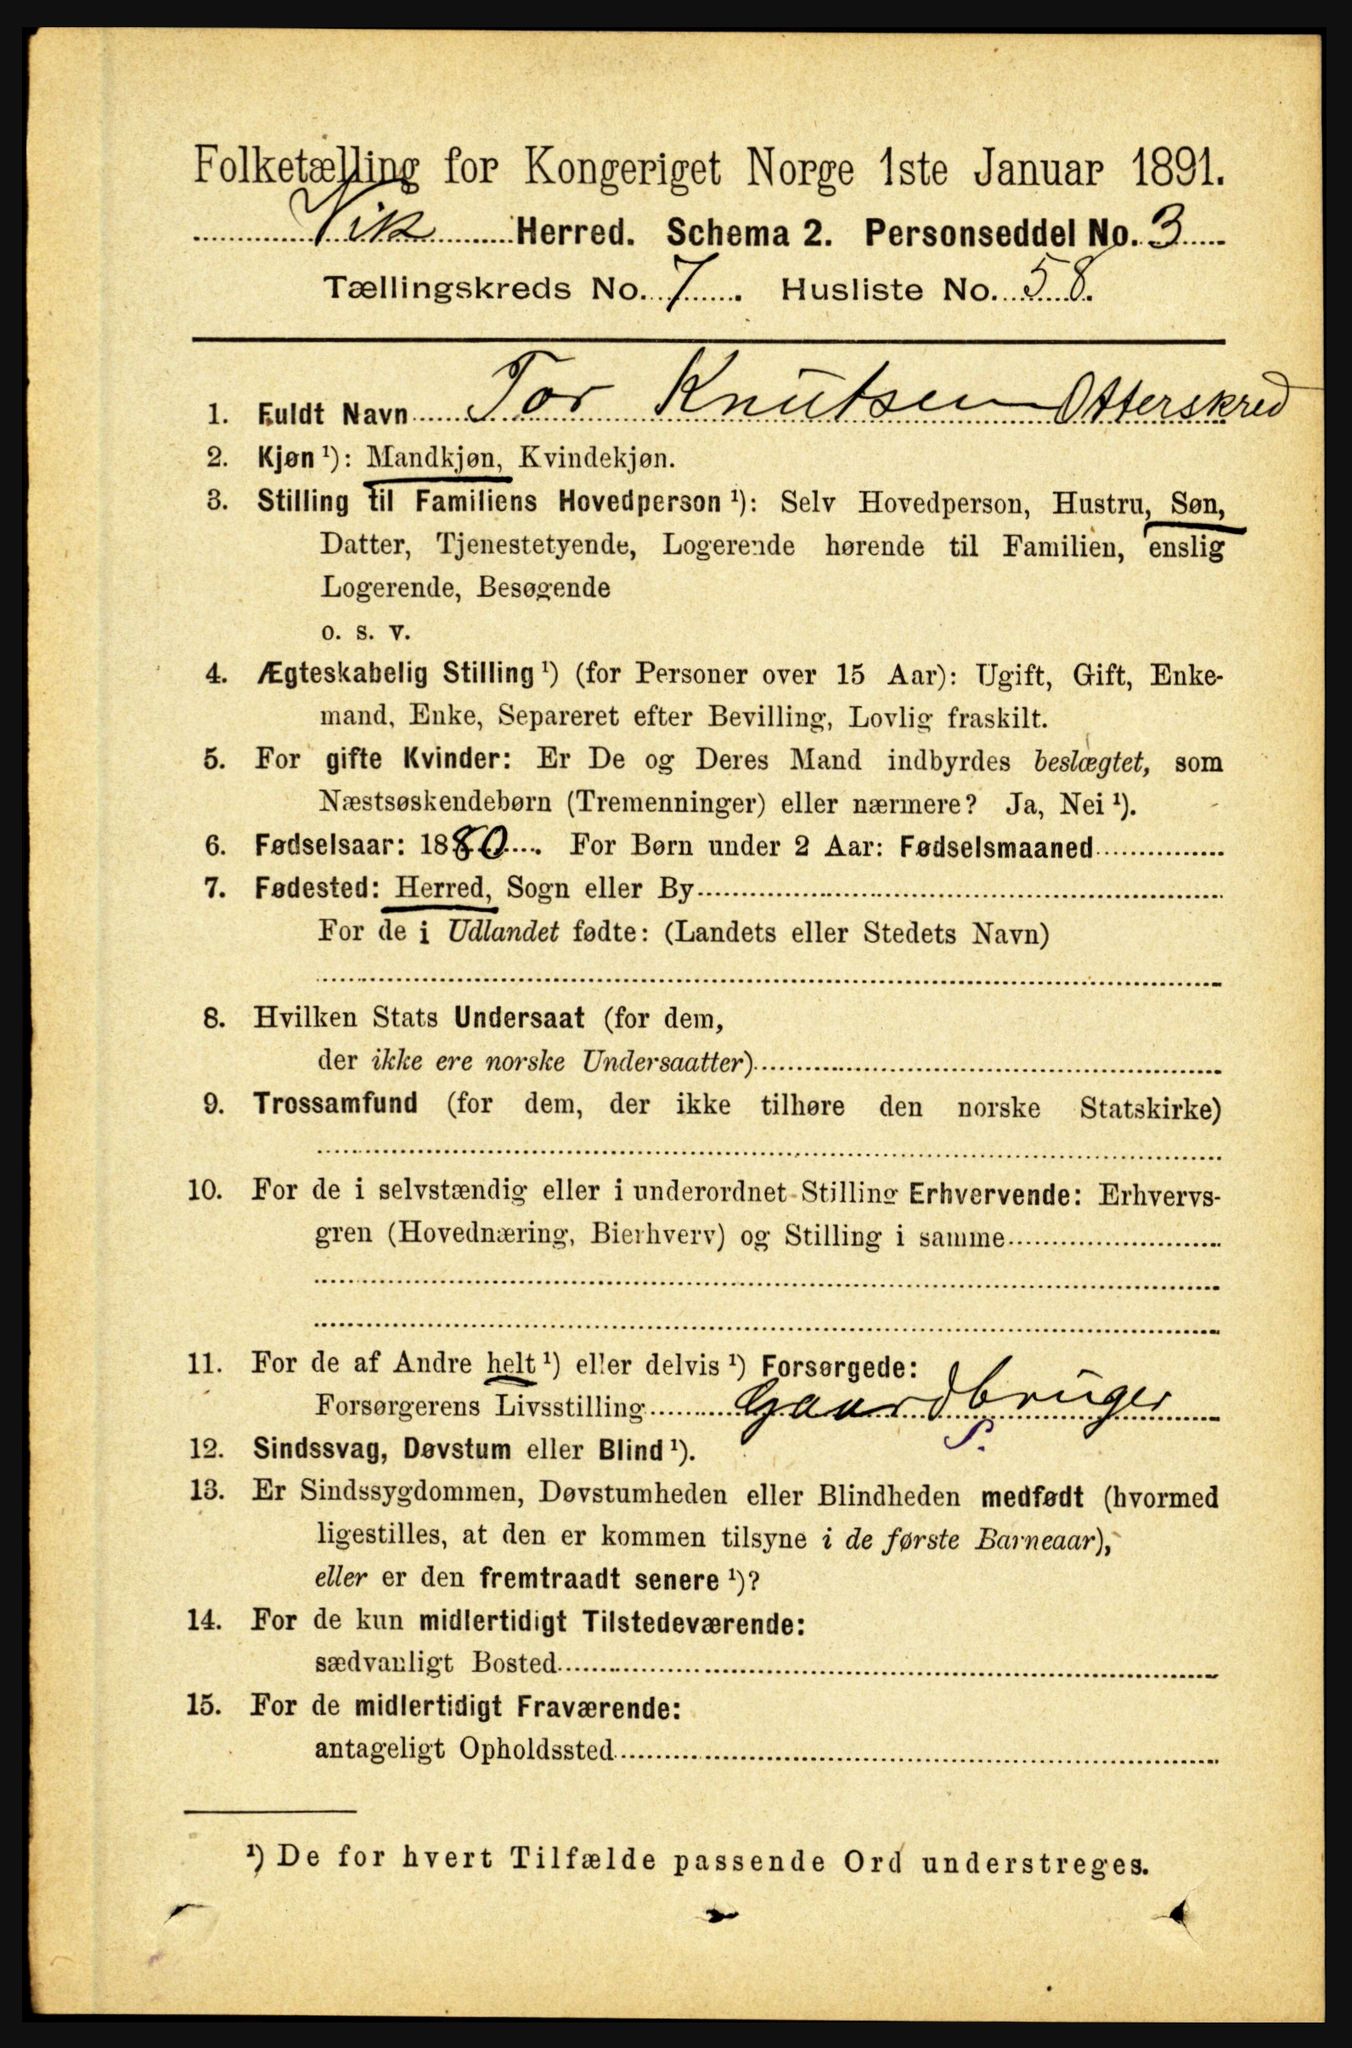 Folketælling for Kongeriget Norge 1ste Januar 1891.
Vik Herred. Schema 2. Personseddel No. 3
Tællingskreds No. 7. Husliste No. 58.
1. Fuldt Navn Tor Knutsen Otterskred
2. Kjøn ¹): Mandkjøn, Kvindekjøn.
3. Stilling til Familiens Hovedperson ¹): Selv Hovedperson, Hustru, Søn,
Datter, Tjenestetyende, Logerende hørende til Familien, enslig
Logerende, Besøgende
o. s. v.
4. Ægteskabelig Stilling ¹) (for Personer over 15 Aar): Ugift, Gift, Enke-
mand, Enke, Separeret efter Bevilling, Lovlig fraskilt.
5. For gifte Kvinder: Er De og Deres Mand indbyrdes beslægtet, som
Næstsøskendebørn (Tremenninger) eller nærmere? Ja, Nei ¹).
6. Fødselsaar: 1880. For Børn under 2 Aar: Fødselsmaaned
7. Fødested: Herred, Sogn eller By
For de i Udlandet fødte: (Landets eller Stedets Navn)
8. Hvilken Stats Undersaat (for dem,
der ikke ere norske Undersaatter)
9. Trossamfund (for dem, der ikke tilhøre den norske Statskirke)
10. For de i selvstændig eller i underordnet Stilling Erhvervende: Erhvervs-
gren (Hovednæring, Bierhverv) og Stilling i samme
11. For de af Andre helt ¹) eller delvis ¹) Forsørgede:
Forsørgerens Livsstilling Gaardbruger
S.
12. Sindssvag, Døvstum eller Blind ¹).
13. Er Sindssygdommen, Døvstumheden eller Blindheden medfødt (hvormed
ligestilles, at den er kommen tilsyne i de første Barneaar),
eller er den fremtraadt senere ¹)?
14. For de kun midlertidigt Tilstedeværende:
sædvanligt Bosted
15. For de midlertidigt Fraværende:
antageligt Opholdssted
¹) De for hvert Tilfælde passende Ord understreges.